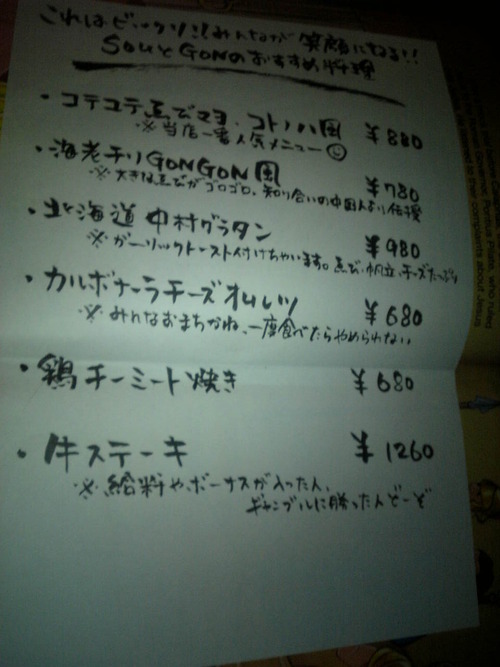 これはビックリ!!みんなが笑顔になる!!
SouとGONのおすすめ料理
・コテコテえびマヨ、コトノハ風 ¥880
※当店一番人気メニュー
・海老チリGONGON風 ¥780
※大きなえびがゴロゴロ。知り合いの中国人より伝授
・北海道中村グラタン ¥980
※ガーリックトースト付けちゃいます。えび、帆立、チーズたっぷり
・カルボナーラチーズオムレツ ¥680
※みんなおまちかね、一度食べたらやめられない
・鶏チーミート焼き ¥680
・牛ステーキ ¥1260
※給料やボーナスが入った人、
ギャンブルに勝った人どーぞ